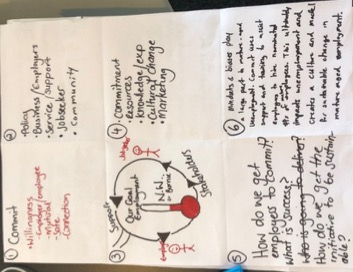 ① Commit
• Willingness
• employer/employee
• Mutual
• Safe
• Connection
② Policy
• Business/Employers
• Service/Support
• Jobseeker
• Community
③
Support
Goal
Employment
Stakeholders
④ Commitment
Resources
• Knowledge/exp
• Cultural change
• Marketing
⑤ How do we get
employers to commit?
What is success?
Who is going to deliver?
How do we get the
initiative to be sustain-
able?
⑥ Mindsets & biases play
a large part in mature-aged
support and training to assist
employers to hire
of employees. This ultimately
impacts unemployment and
creates a culture and model
for sustainable change in
mature aged employment.